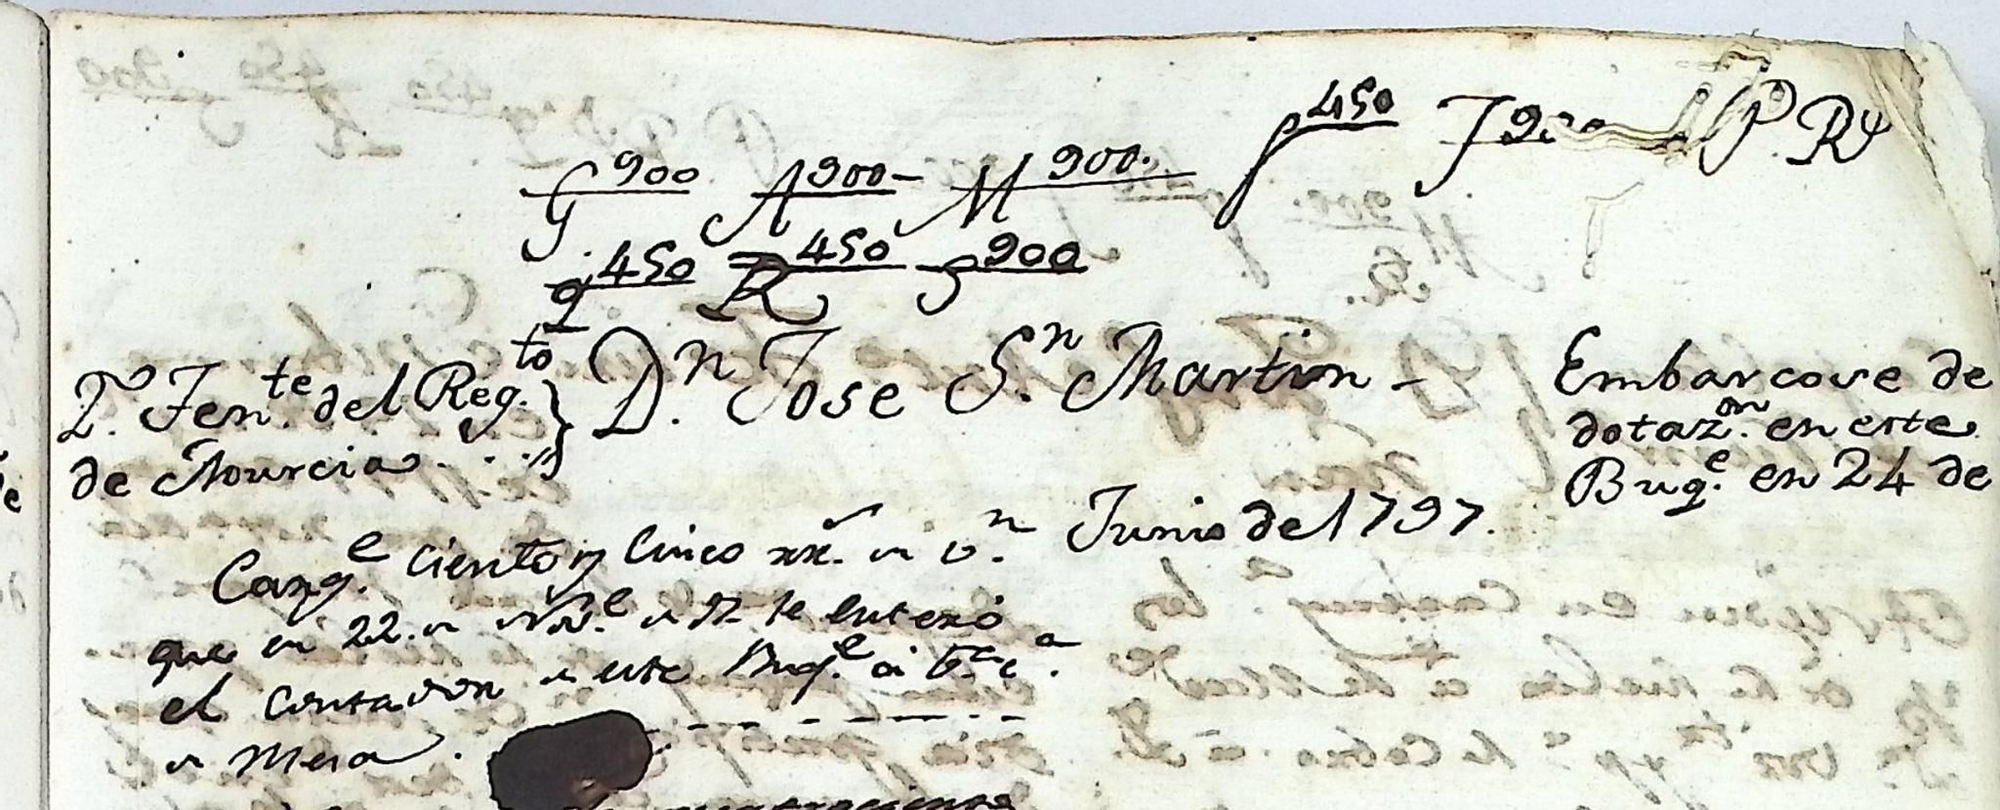 P 450 J 900 P. R
G 900 A 900 - M 900.
q 450 R 450 S 900
2.º Ten.te del Reg.to } D.n Jose S.n Martin -
de Mourcia . . .
Embarcose de
dotaz.on en este
Buq.e en 24 de
Junio de 1797.
Carg.e ciento y cinco
que en 22. se enteró
el contador este Buq.e á
Mesa .